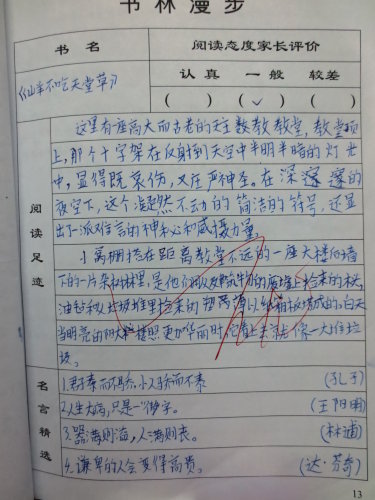 书林漫步
书名 阅读态度家长评价
《山羊不吃天堂草》 认真 一般 较差
( ) (✓) ( )
这里有一座高大而古老的天主教教堂,教堂顶
上,那个十字架在反射到天空中半明半暗的灯光
中,显得既哀伤,又庄严神圣。在深邃的
夜空下,这个凝然不动的简洁的符号,还显
出了一派的神秘和威慑力量。
阅读足迹
小窝棚搭在距离教堂不远的一座大楼后墙
下的一片杂树林里,是他们从
油毡和从垃圾堆里捡来的塑料薄以纸箱板搭成的白天
当明亮的阳光楼照更加华丽时,它看上去就像一大堆垃
圾。
名言精选
1.君子泰而不骄,小人骄而不泰 (孔子)
2.人生大病,只是一傲字。 (王阳明)
3.器满则溢,人满则丧。 (林逋)
4.谦卑的人会变得高贵。 (达·芬奇)
13